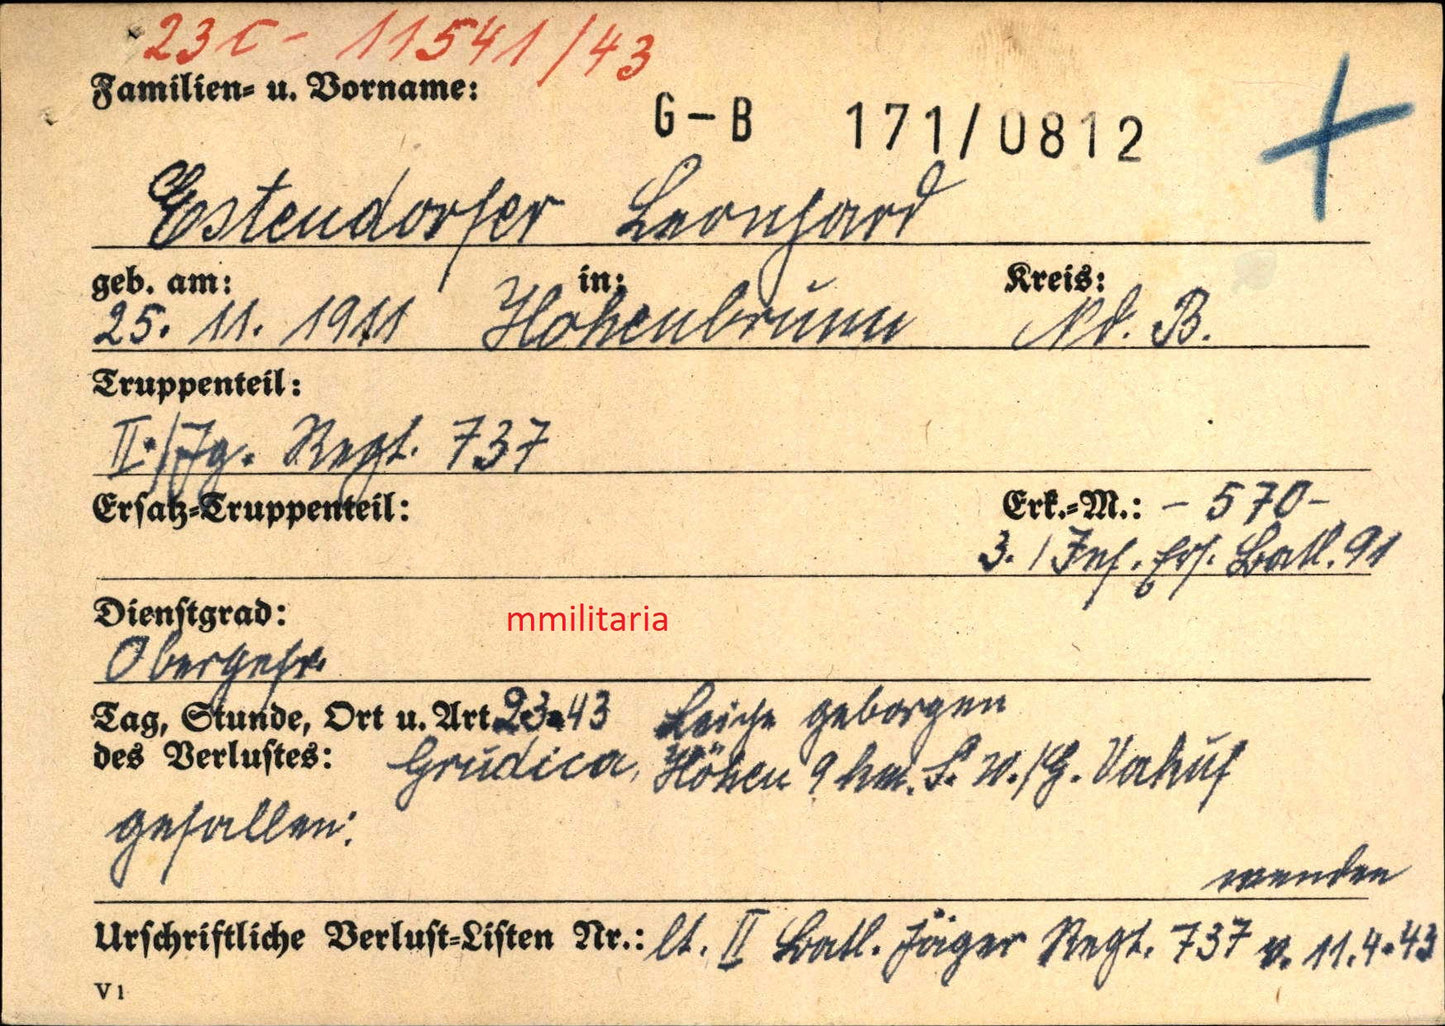 23 C - 11541/43
Familien- u. Vorname:
G-B 171/0812
Estendorfer Leonhard
geb. am: in: Kreis:
25. 11. 1911 Hohenbrunn Nd. B.
Truppenteil:
II./Jg. Regt. 737
Ersatz-Truppenteil: Erk.-M.: - 570 -
3. / Inf. Ers. Batl. 91
Dienstgrad:
mmilitaria
Obergefr.
Tag, Stunde, Ort u. Art 43 Leiche geborgen
des Verlustes: Grudica, Höhen 9 km. S. W./G. Vakuf
gefallen:
wenden
Urschriftliche Verlust-Listen Nr.: lt. II Batl. Jäger Regt. 737 v. 11.4.43
V 1